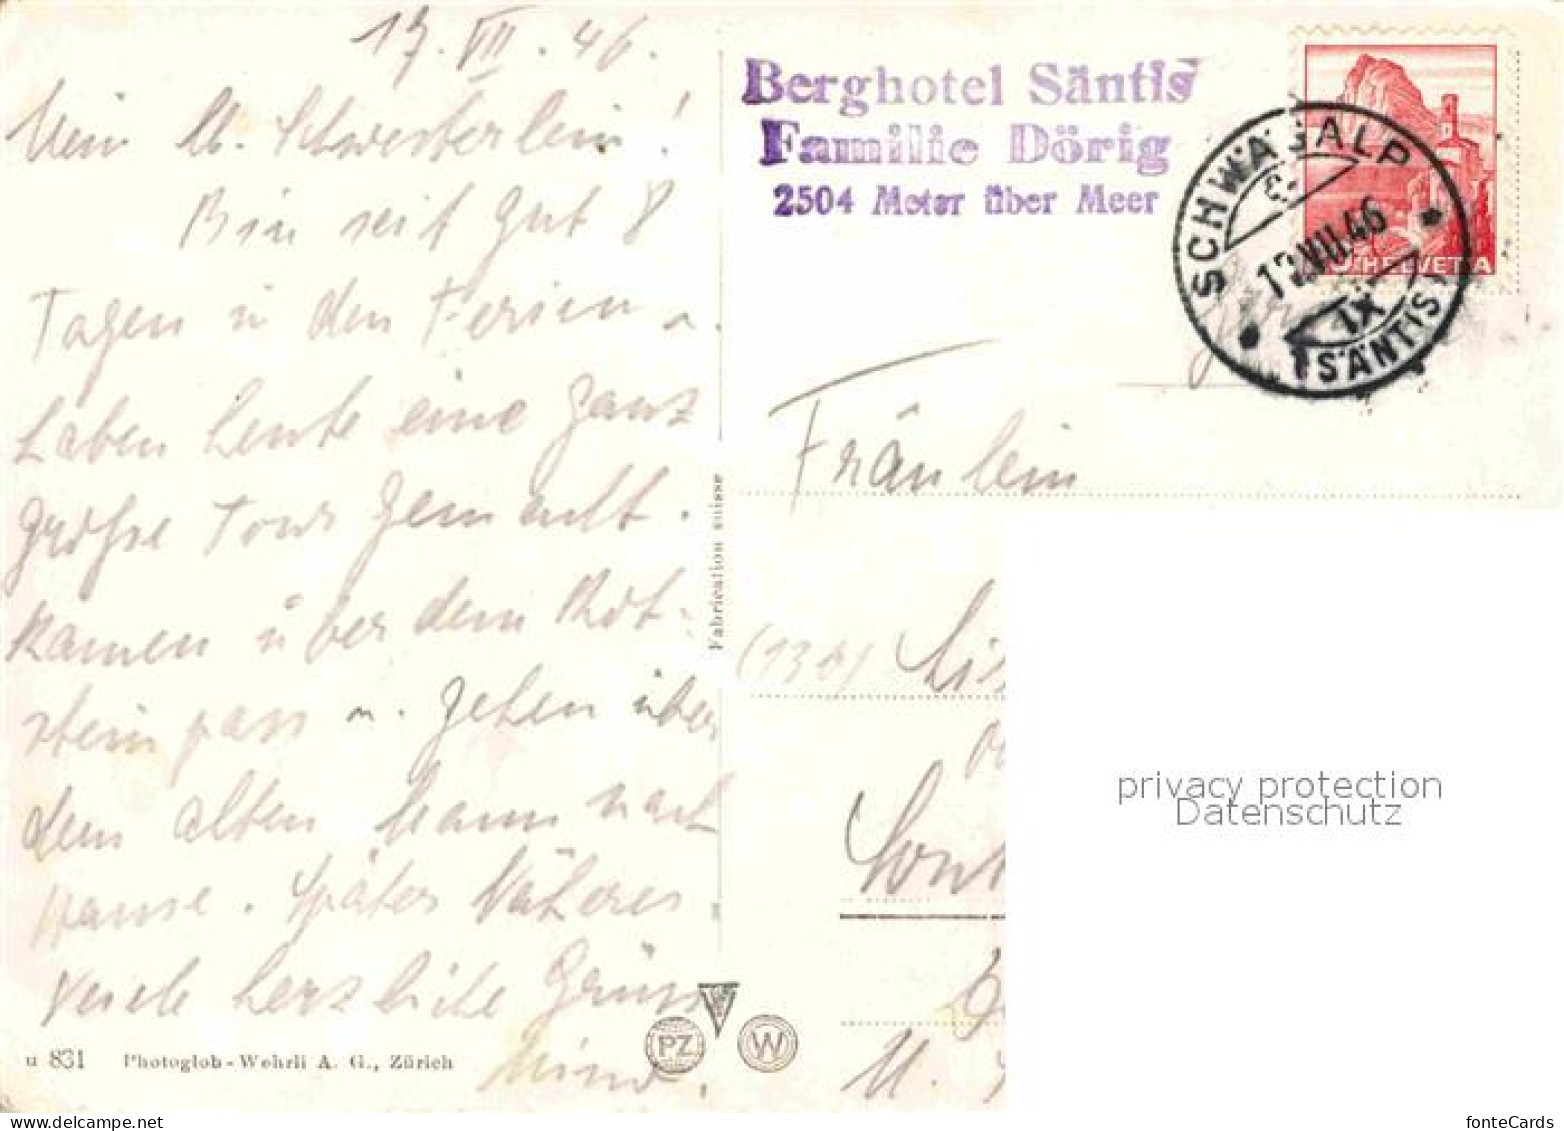 17. VII. 46.
Mein lb. Schwesterlein!
Bin seit gut 8
Tagen in den Ferien u.
haben heute eine ganz
große Tour gemacht.
Kamen über den Rot-
steinpass u. gehen über
den alten Mann nach
Hause. Später Näheres
Viele herzliche Grüsse
u 831 Photoglob-Wehrli A. G., Zürich
Fabrication suisse
PZ W
Berghotel Säntis
Familie Dörig
2504 Meter über Meer
SCHWÄGALP
VII.46
HELVETIA
IX
(SÄNTIS)
Fräulein
privacy protection
Datenschutz
fonteCards